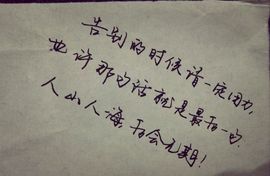 告别的时候请一定用力,
也许那的话就是最后一的.
人山人海 后会无期!